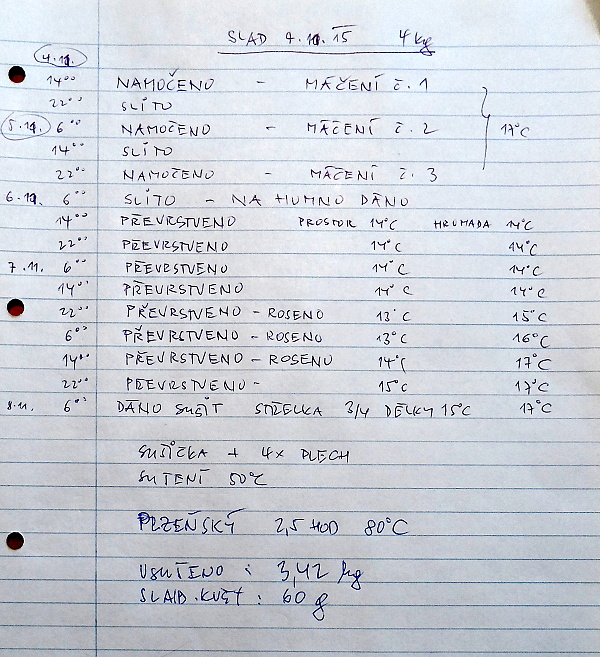 SLAD 4.11.15 4 kg
4.11.
14°° NAMOČENO - MÁČENÍ č. 1
22°° SLITO
5.11. 6°° NAMOČENO - MÁČENÍ č. 2 17°C
14°° SLITO
22°° NAMOČENO - MÁČENÍ č. 3
6.11. 6°° SLITO - NA HUMNO DÁNO
14°° PŘEVRSTVENO PROSTOR 14°C HROMADA 14°C
22°° PŘEVRSTVENO 14°C 14°C
7.11. 6°° PŘEVRSTVENO 14°C 14°C
14°° PŘEVRSTVENO 14°C 14°C
22°° PŘEVRSTVENO - ROSENO 13°C 15°C
6°° PŘEVRSTVENO - ROSENO 13°C 16°C
14°° PŘEVRSTVENO - ROSENO 14°C 17°C
22°° PŘEVRSTVENO - 15°C 17°C
8.11. 6°° DÁNO SUŠIT STŘELKA 3/4 DÉLKY 15°C 17°C
SUŠIČKA + 4x PLECH
SUŠENÍ 50°C
PLZEŇSKÝ 2,5 HOD 80°C
USUŠENO : 3,42 kg
SLAD. KVĚT : 60 g